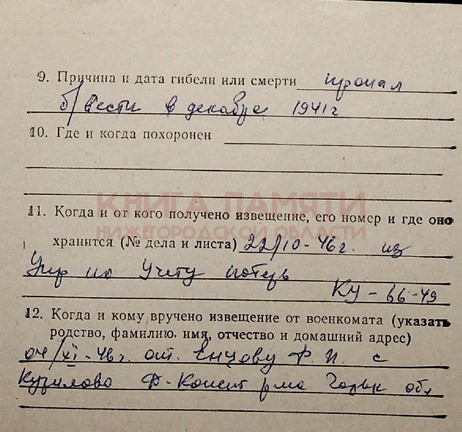 9. Причина и дата гибели или смерти пропал
б/вести в декабре 1941 г
10. Где и когда похоронен
КНИГА ПАМЯТИ
НИЖЕГОРОДСКОЙ ОБЛАСТИ
11. Когда и от кого получено извещение, его номер и где оно
хранится (№ дела и листа) 22/10-46 г. из
Упр по учету потерь
КУ-66-49
12. Когда и кому вручено извещение от военкомата (указать
родство, фамилию, имя, отчество и домашний адрес)
04/XI-46 г. от. Енцову Ф. П. с
Ф- р-на Горьк обл